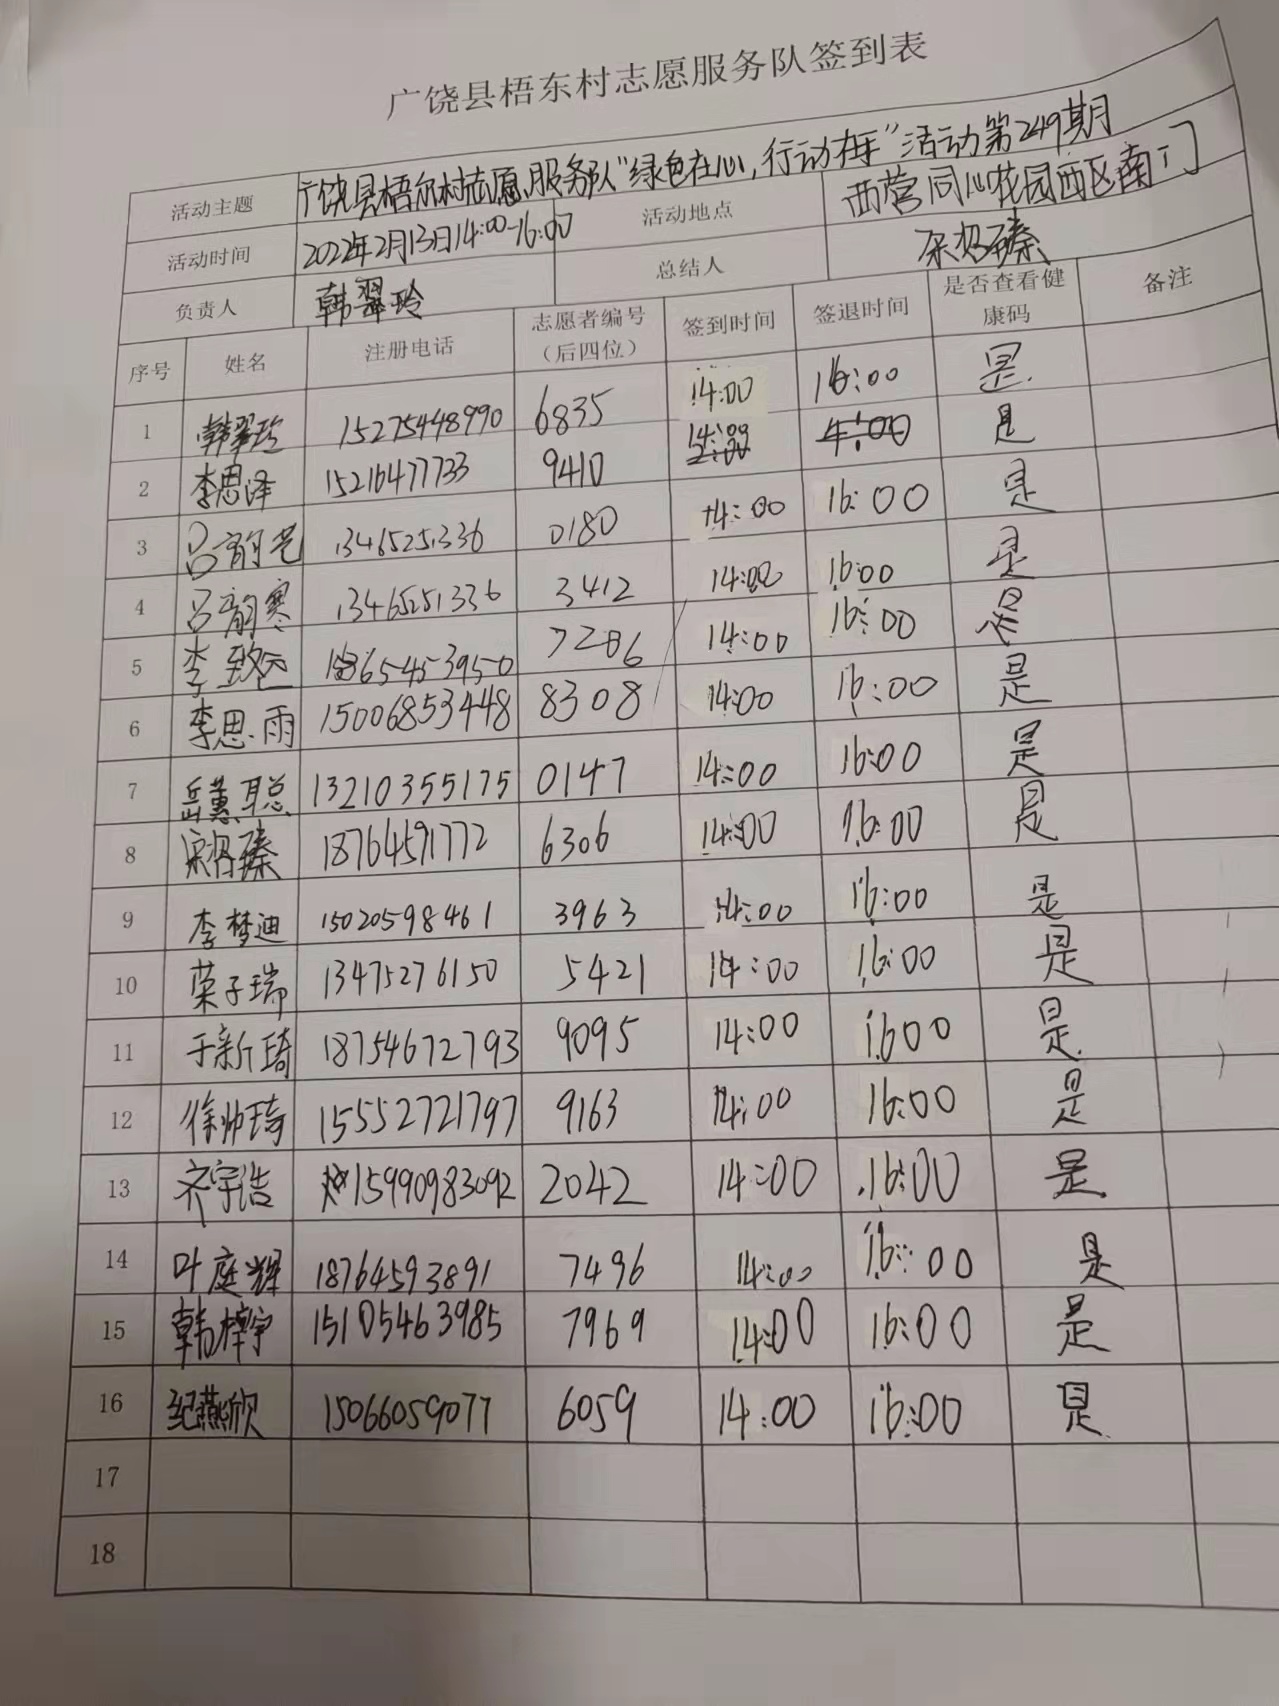 广饶县梧东村志愿服务队签到表
活动主题 广饶县梧东村志愿服务队“绿色在心,行动在手”活动第249期
活动时间 2022年2月13日14:00-16:00 活动地点 西营同心花园西区南门
负责人 韩翠玲 总结人
序号 姓名 注册电话 志愿者编号（后四位） 签到时间 签退时间 是否查看健康码 备注
1 韩翠玲 15275448990 6835 14:00 16:00 是
2 李思泽 15216477733 9410 是
3 吕韵 13465251336 0180 14:00 16:00 是
4 吕韵寒 13465251336 3412 14:00 16:00 是
5 李致 1865453950 7206 14:00 16:00 是
6 李思雨 15006853448 8308 14:00 16:00 是
7 岳蕙聪 13210355175 0147 14:00 16:00 是
8 18764591772 6306 14:00 16:00 是
9 李梦迪 15020598461 3963 14:00 16:00 是
10 荣子瑞 13475276150 5421 14:00 16:00 是
11 于新琦 18754672793 9095 14:00 1600 是
12 徐帅琦 15552721797 9163 14:00 16:00 是
13 齐宇浩 15990983092 2042 14:00 16:00 是
14 叶庭辉 18764593891 7496 14:00 16:00 是
15 韩梓宇 15105463985 7969 14:00 16:00 是
16 纪燕欣 15066059077 6059 14:00 16:00 是
17
18